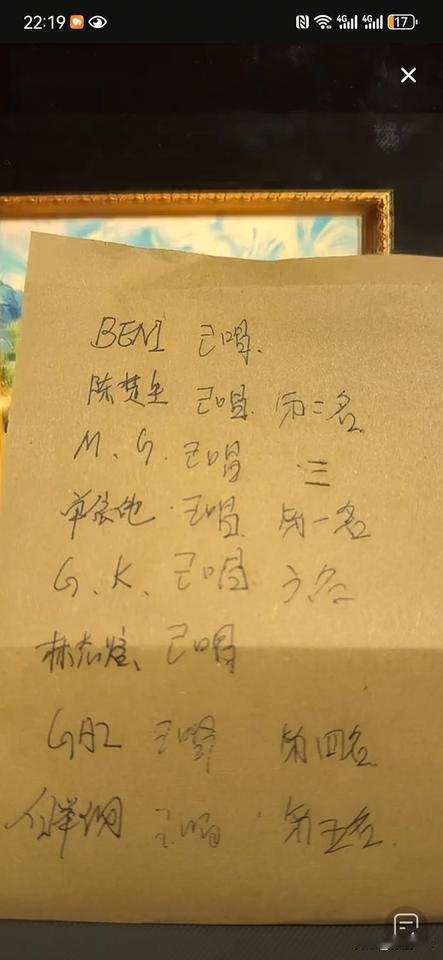 22:19 4G 4G 17
BENI 已唱.
陈楚生 已唱. 第二名.
M、G. 已唱 三
单依纯 已唱 第一名
G、K、 已唱 六名
林志炫、 已唱
GAI 已唱 第四名
白举纲 已唱 第五名.